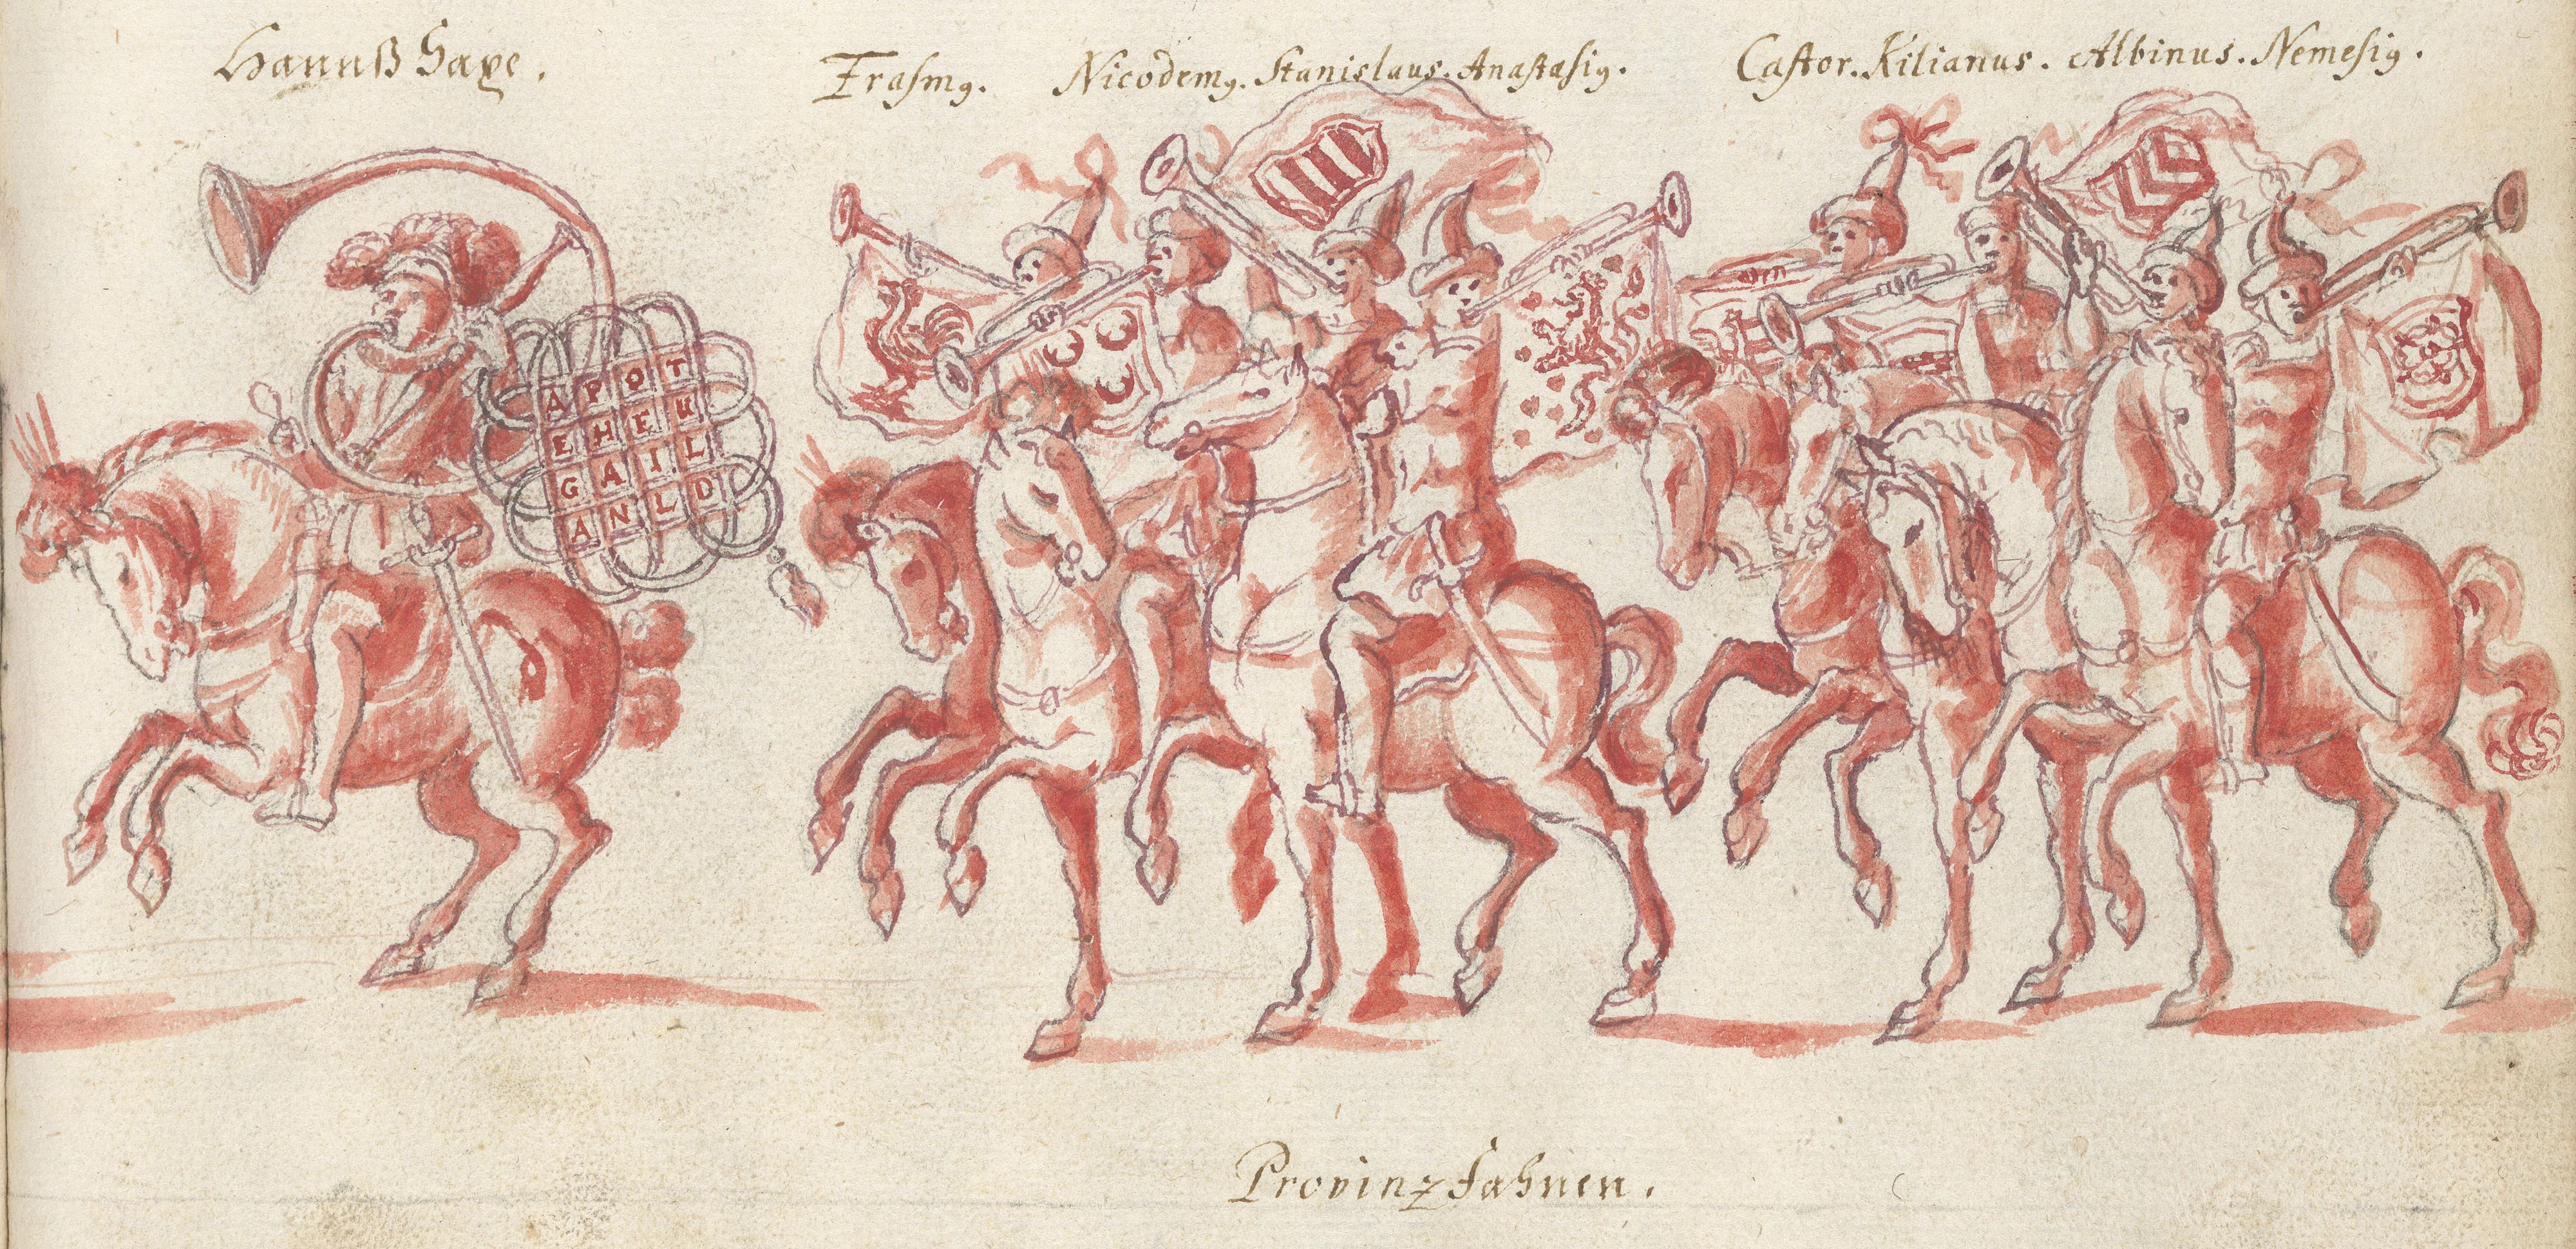 Hannß Saxe.
Erasmꝰ. Nicodemꝰ. Stanislaus. Anastasiꝰ.
Castor. Kilianus. Albinus. Nemesiꝰ.
A P O T
E H E U
G A I L
A N L D
Provinz fahnen.